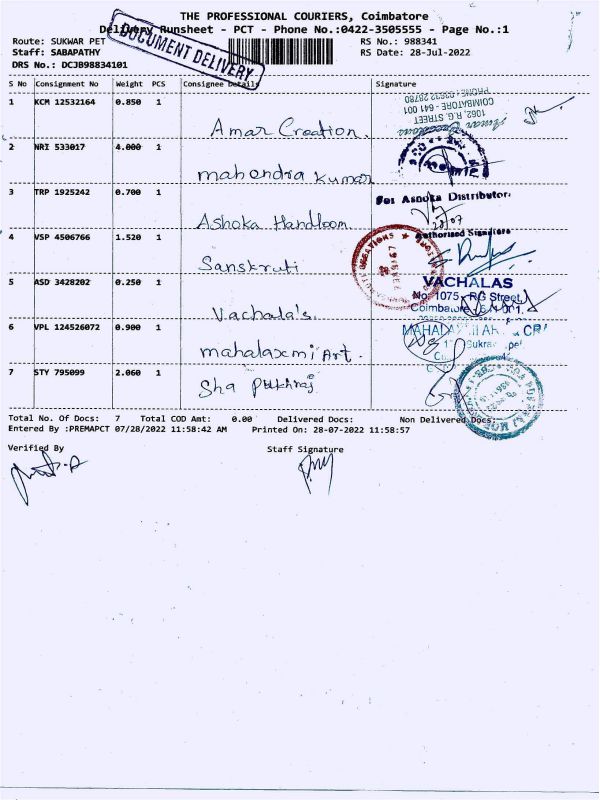 THE PROFESSIONAL COURIERS, Coimbatore
Delivery Runsheet - PCT - Phone No.:0422-3505555 - Page No.:1
DOCUMENT DELIVERY
Route: SUKWAR PET
RS No.: 988341
Staff: SABAPATHY
RS Date: 28-Jul-2022
DRS No.: DCJB98834101
S No Consignment No Weight PCS Consignee Details Signature
1 KCM 12532164 0.850 1 Amar Creation.
1062, R.G. STREET
COIMBATORE - 641 001
2 NRI 533017 4.000 1 mahendra Kumar
3 TRP 1925242 0.700 1 Ashoka Handloom
For Ashoka Distributor.
28/07
Authorised Signature
4 VSP 4506766 1.520 1 Sanskruti
5 ASD 3428202 0.250 1 Vachala's.
VACHALAS
No. 1075, RG Street,
Coimbatore
6 VPL 124526072 0.900 1 mahalaxmi Art.
7 STY 795099 2.060 1 Sha Pukhraj
Total No. Of Docs: 7 Total COD Amt: 0.00 Delivered Docs: Non Delivered Docs:
Entered By :PREMAPCT 07/28/2022 11:58:42 AM Printed On: 28-07-2022 11:58:57
Verified By Staff Signature